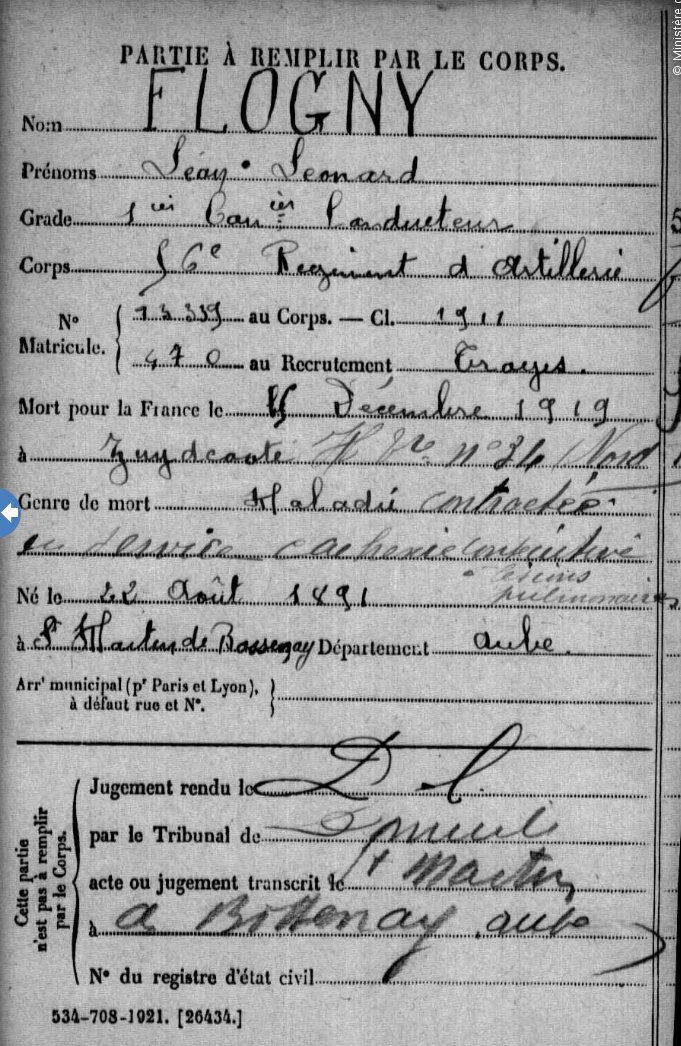 © Ministère d
PARTIE À REMPLIR PAR LE CORPS.
Nom FLOGNY
Prénoms Léon Leonard
Grade 1er Canier Conducteur
Corps 56e Regiment d'Artillerie
No Matricule. 13339 au Corps. — Cl. 1911
470 au Recrutement Troyes.
Mort pour la France le 15 Décembre 1919
à Zuydcoote n° 34 Nord
Genre de mort Maladie contractée
en service cachexie consécutive
lésions
pulmonaires
Né le 22 Août 1891
à St Martin de Bossenay Département Aube.
Arrt municipal (pr Paris et Lyon),
à défaut rue et No.
Cette partie n'est pas à remplir par le Corps.
Jugement rendu le
par le Tribunal de
acte ou jugement transcrit le St Martin
à Bossenay aube
No du registre d'état civil
534-708-1921. [26434.]